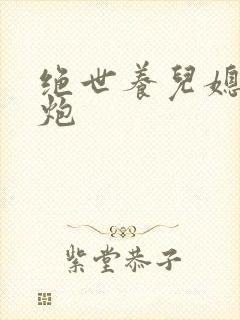 绝世养兒媳
炮
紫堂恭子